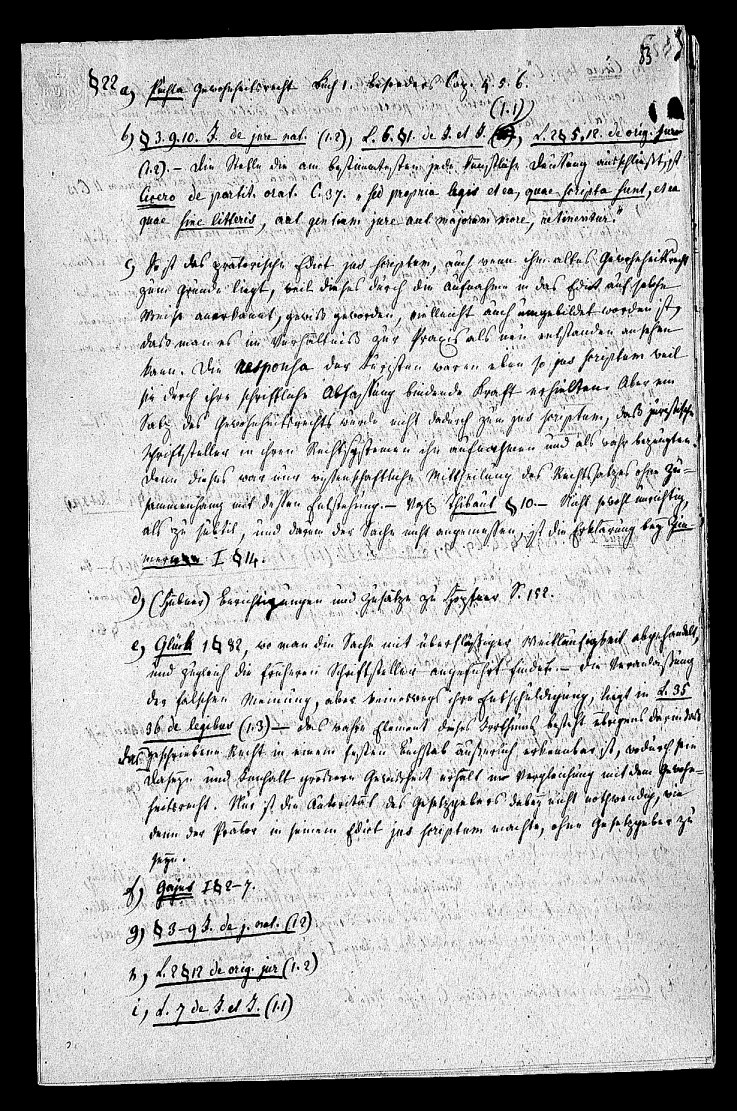 83
§22 a) Puchta Gewohnheitsrecht Buch 1. besonders Cap. 4. 5. 6.
(1.1)
b) § 3. 9. 10. J. de jure nat. (1.2), L. 6. §1. de J. et J., L. 2 § 5. 12. de orig. jur.
(1.2). – Die Stelle die am bestimmtesten jede künstliche Deutung ausschließt, ist
Cicero de partit. orat. C. 37. „sed propria legis et ea, quae scripta sunt, et ea
quae sine litteris, aut gentium jure aut majorum more, retinentur."
c) So ist das prätorische Edict jus scriptum, auch wenn ihm altes Gewohnheitsrecht
zum Grunde liegt, weil dieses durch die Aufnahme in das Edict auf solche
Weise anerkannt, gewiß geworden, vielleicht auch umgebildet worden ist,
daß man es im Verhältniß zur Praxis als neu entstanden ansehen
kann. Die responsa der Juristen waren eben so jus scriptum weil
sie durch ihre schriftliche Abfassung bindende Kraft erhielten. Aber ein
Satz des Gewohnheitsrechts wurde nicht dadurch zum jus scriptum, daß juristische
Schriftsteller in ihren Rechtssystemen ihn aufnahmen und als wahr bezeugten.
Denn dieses war nur wissenschaftliche Mittheilung des Rechtssatzes ohne Zu-
sammenhang mit dessen Entstehung. – Vgl. Thibaut § 10. – Nicht sowohl unrichtig,
als zu subtil, und darum der Sache nicht angemessen, ist die Erklärung bey Zim-
mermann I § 14.
d) (Hübner) Berichtigungen und Zusätze zu Höpfner S. 152.
e) Glück 1 § 82, wo man die Sache mit überflüssiger Weitläufigkeit abgehandelt,
und zugleich die früheren Schriftsteller angeführt findet. – Die Veranlassung
der falschen Meinung, aber keineswegs ihre Entschuldigung, liegt in L. 35
36 de legibus (1.3) – Das wahre Element dieses Irrthums besteht übrigens darin daß
das geschriebene Recht in einem festen Buchstab äußerlich erkennbar ist, wodurch sein
Daseyn und Inhalt größere Gewißheit erhält in Vergleichung mit dem Gewohn-
heitsrecht. Nur ist die Autorität des Gesetzgebers dabey nicht nothwendig, wie
denn der Prätor in seinem Edict jus scriptum machte, ohne Gesetzgeber zu
seyn.
f) Gajus I § 2–7.
g) § 3–9 J. de j. nat. (1.2)
h) L. 2 § 12 de orig. jur (1.2)
i) L. 7 de J. et J. (1.1)